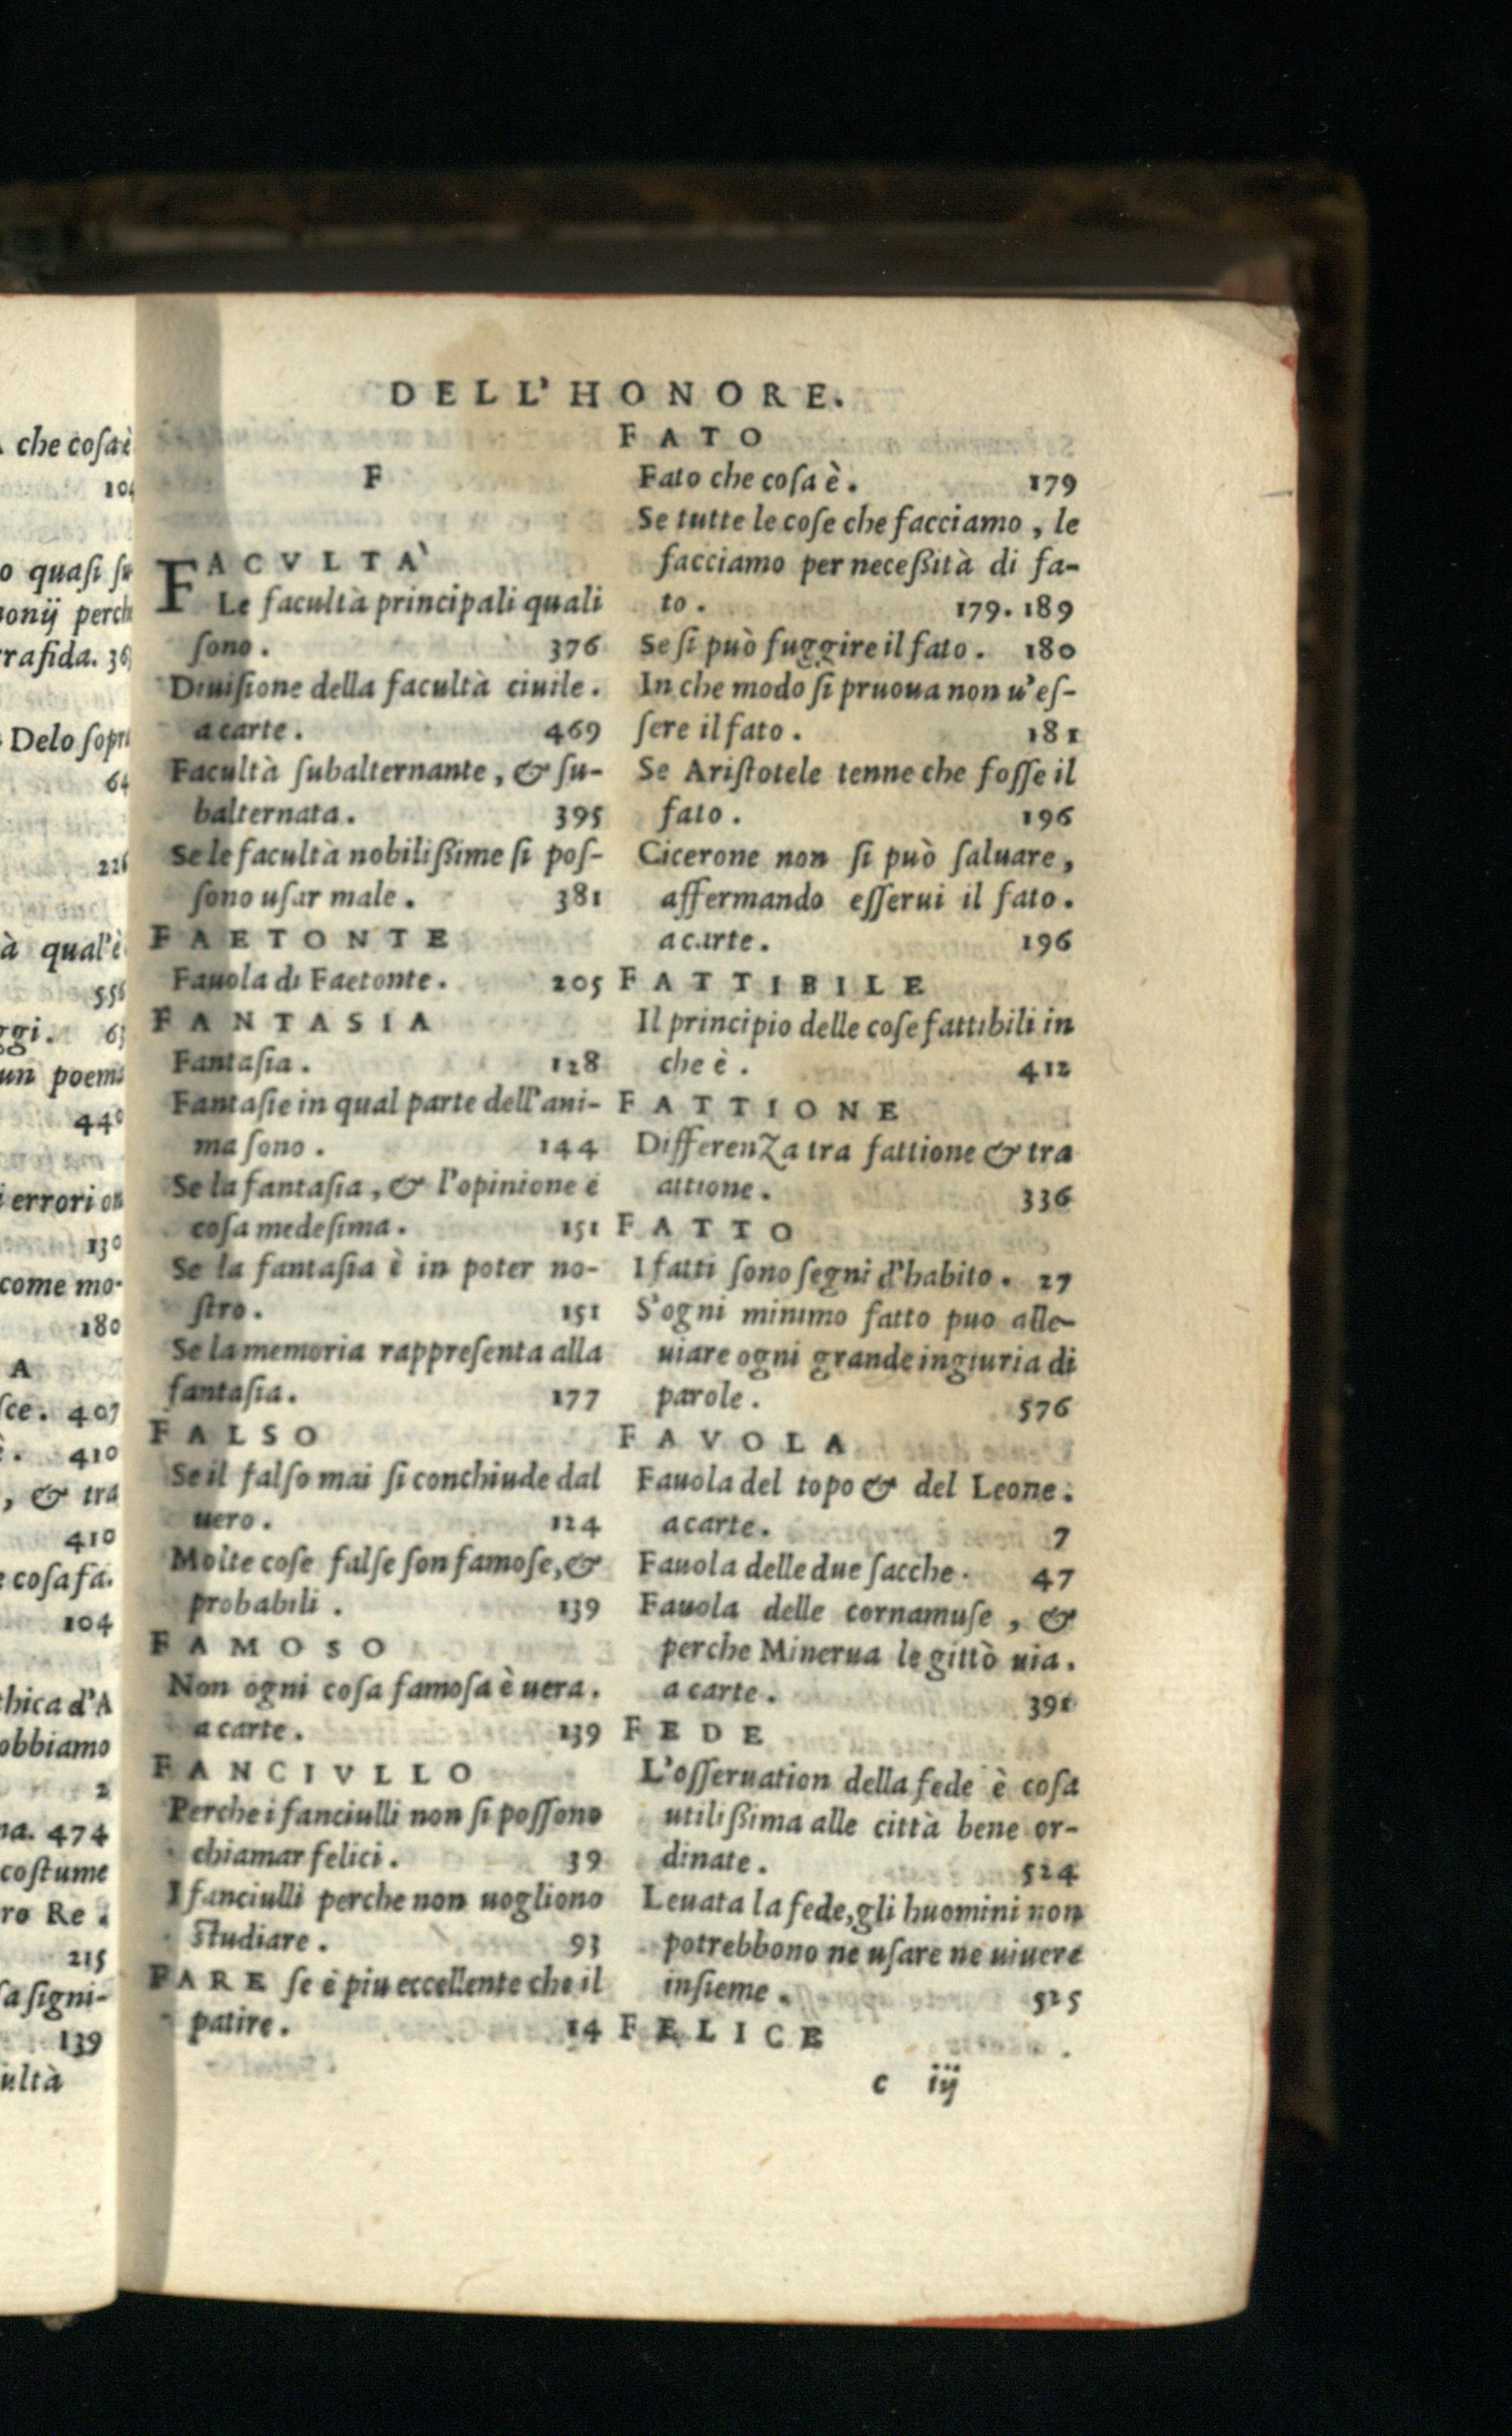 che cosa è
104
o quasi su
onij perch
rafida. 36
Delo sopr
64
226
à qual'è
556
ggi. 63
un poema
440
i errori on
130
come mo-
180
A
sce. 407
è. 410
, & tra
410
e cosa fa-
104
thica d'A
obbiamo
2
na. 474
costume
ro Re.
215
sa signi-
139
ultà
DELL'HONORE.
F
FACVLTA'
Le facultà principali quali
sono. 376
Diuisione della facultà ciuile.
a carte. 469
Facultà subalternante, & su-
balternata. 395
Se le facultà nobilißime si pos-
sono usar male. 381
FAETONTE
Fauola di Faetonte. 205
FANTASIA
Fantasia. 128
Fantasie in qual parte dell'ani-
ma sono. 144
Se la fantasia, & l'opinione è
cosa medesima. 151
Se la fantasia è in poter no-
stro. 151
Se la memoria rappresenta alla
fantasia. 177
FALSO
Se il falso mai si conchiude dal
uero. 124
Molte cose false son famose, &
probabili. 139
FAMOSO
Non ogni cosa famosa è uera.
a carte. 139
FANCIVLLO
Perche i fanciulli non si possono
chiamar felici. 39
I fanciulli perche non uogliono
studiare. 93
FARE se è piu eccellente che il
patire. 14
FATO
Fato che cosa è. 179
Se tutte le cose che facciamo, le
facciamo per neceßità di fa-
to. 179. 189
Se si può fuggire il fato. 180
In che modo si pruoua non u'es-
sere il fato. 181
Se Aristotele tenne che fosse il
fato. 196
Cicerone non si può saluare,
affermando esserui il fato.
a carte. 196
FATTIBILE
Il principio delle cose fattibili in
che è. 412
FATTIONE
Differenza tra fattione & tra
attione. 336
FATTO
I fatti sono segni d'habito. 27
S'ogni minimo fatto puo alle-
uiare ogni grande ingiuria di
parole. 576
FAVOLA
Fauola del topo & del Leone.
a carte. 7
Fauola delle due sacche. 47
Fauola delle cornamuse, &
perche Minerua le gittò uia.
a carte. 391
FEDE
L'osseruation della fede è cosa
utilißima alle città bene or-
dinate. 524
Leuata la fede, gli huomini non
potrebbono ne usare ne uiuere
insieme. 525
FELICE
c iij